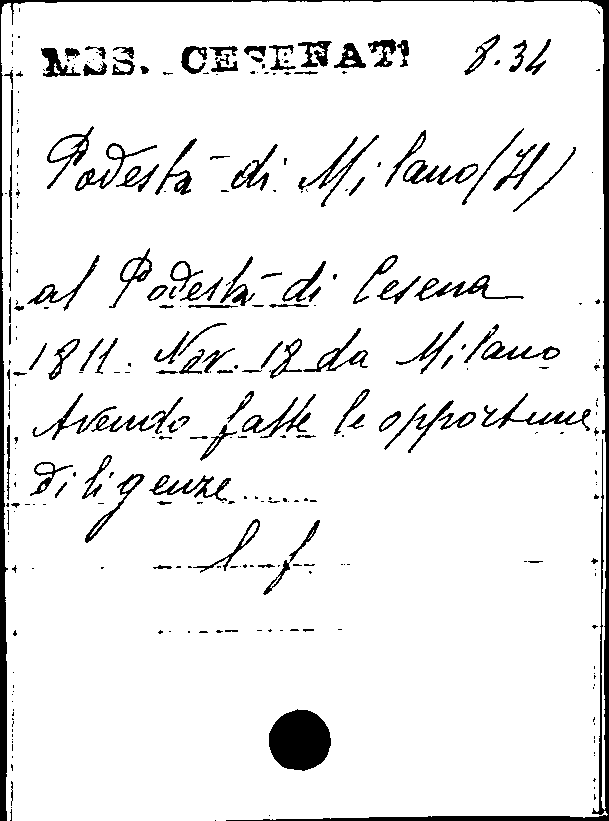 MSS. CESENATI 8.34
Podestà di Milano (Il)
al Podestà di Cesena
1811. Nov. 18 da Milano
Avendo fatte le opportune
diligenze......
l. f.